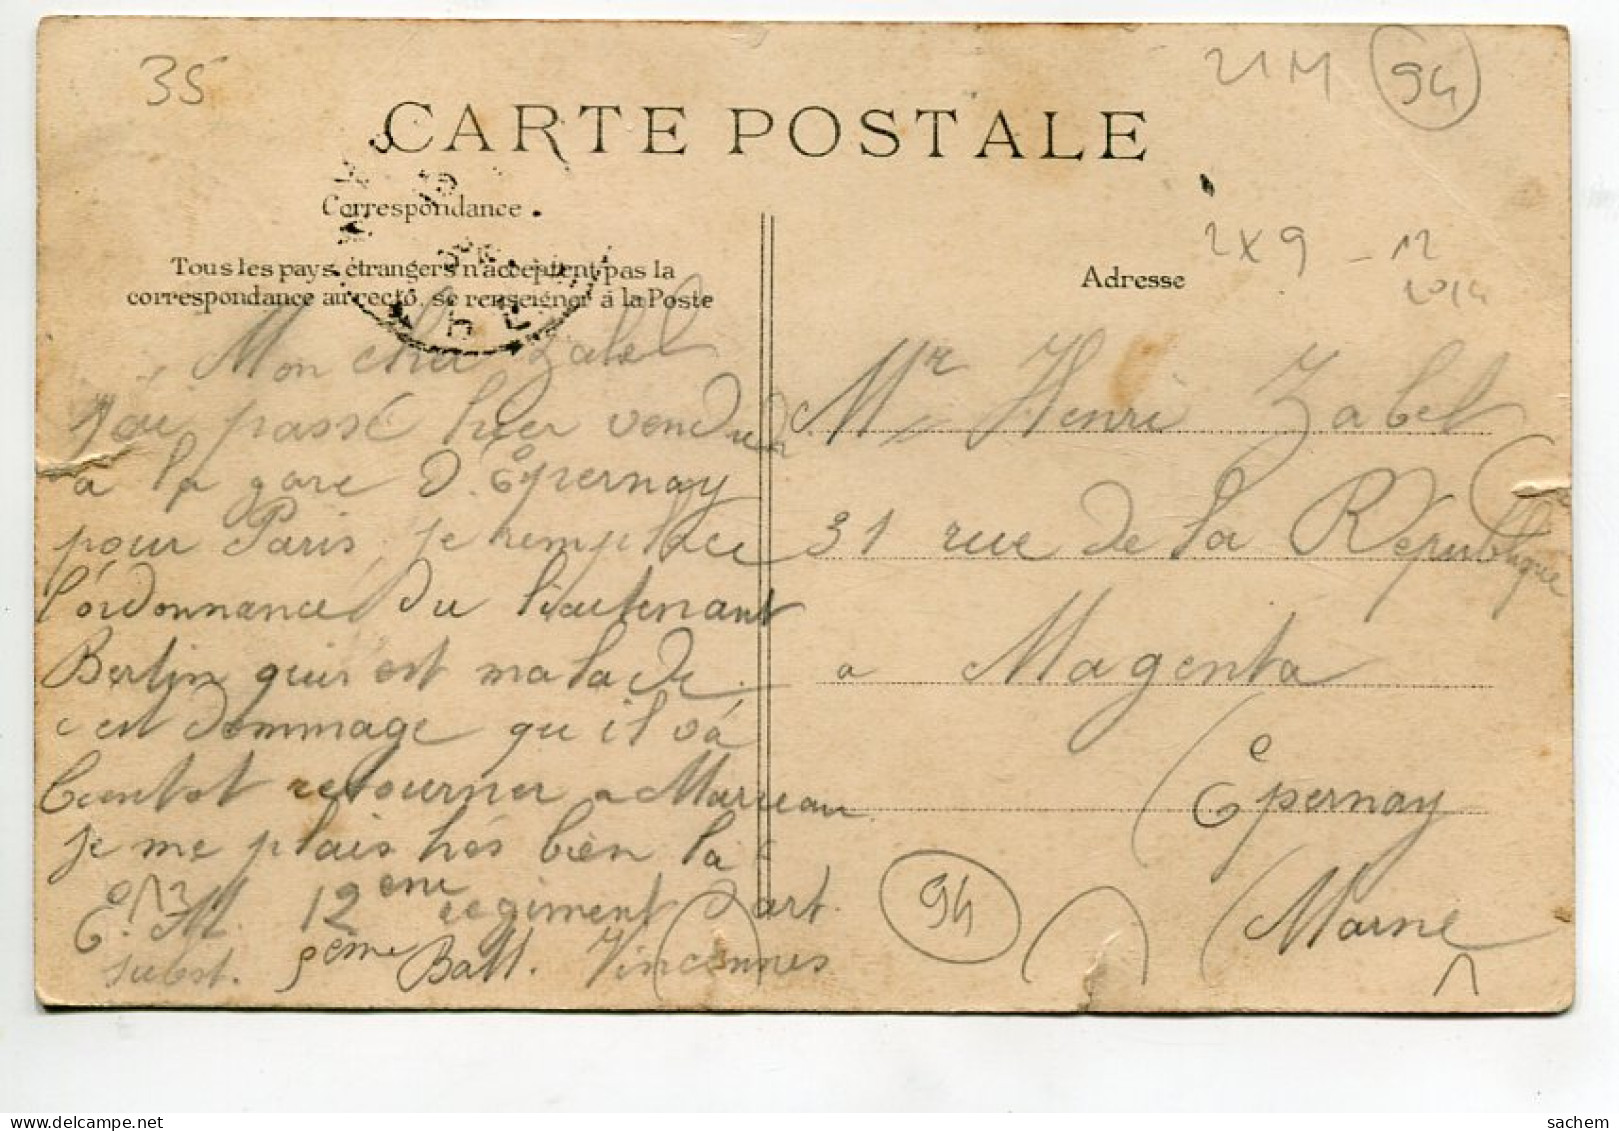 35
21M 94
CARTE POSTALE
Correspondance
Tous les pays étrangers n'acceptent pas la
correspondance au recto, se renseigner à la Poste
Mon cher Zabel
J'ai passé hier vendredi
a la gare d'Épernay
pour Paris, je remplace
l'ordonnance du lieutenant
Bertin qui est malade
c'est dommage qu'il va
bientot retourner a
je me plais trés bien la
12eme regiment d'art.
subst. 5eme Batt. Vincennes
2x9 - 12
2014
Adresse
Mr Henri Zabel
31 rue de la République
a Magenta
Épernay
94
Marne
delcampe.net
sachem